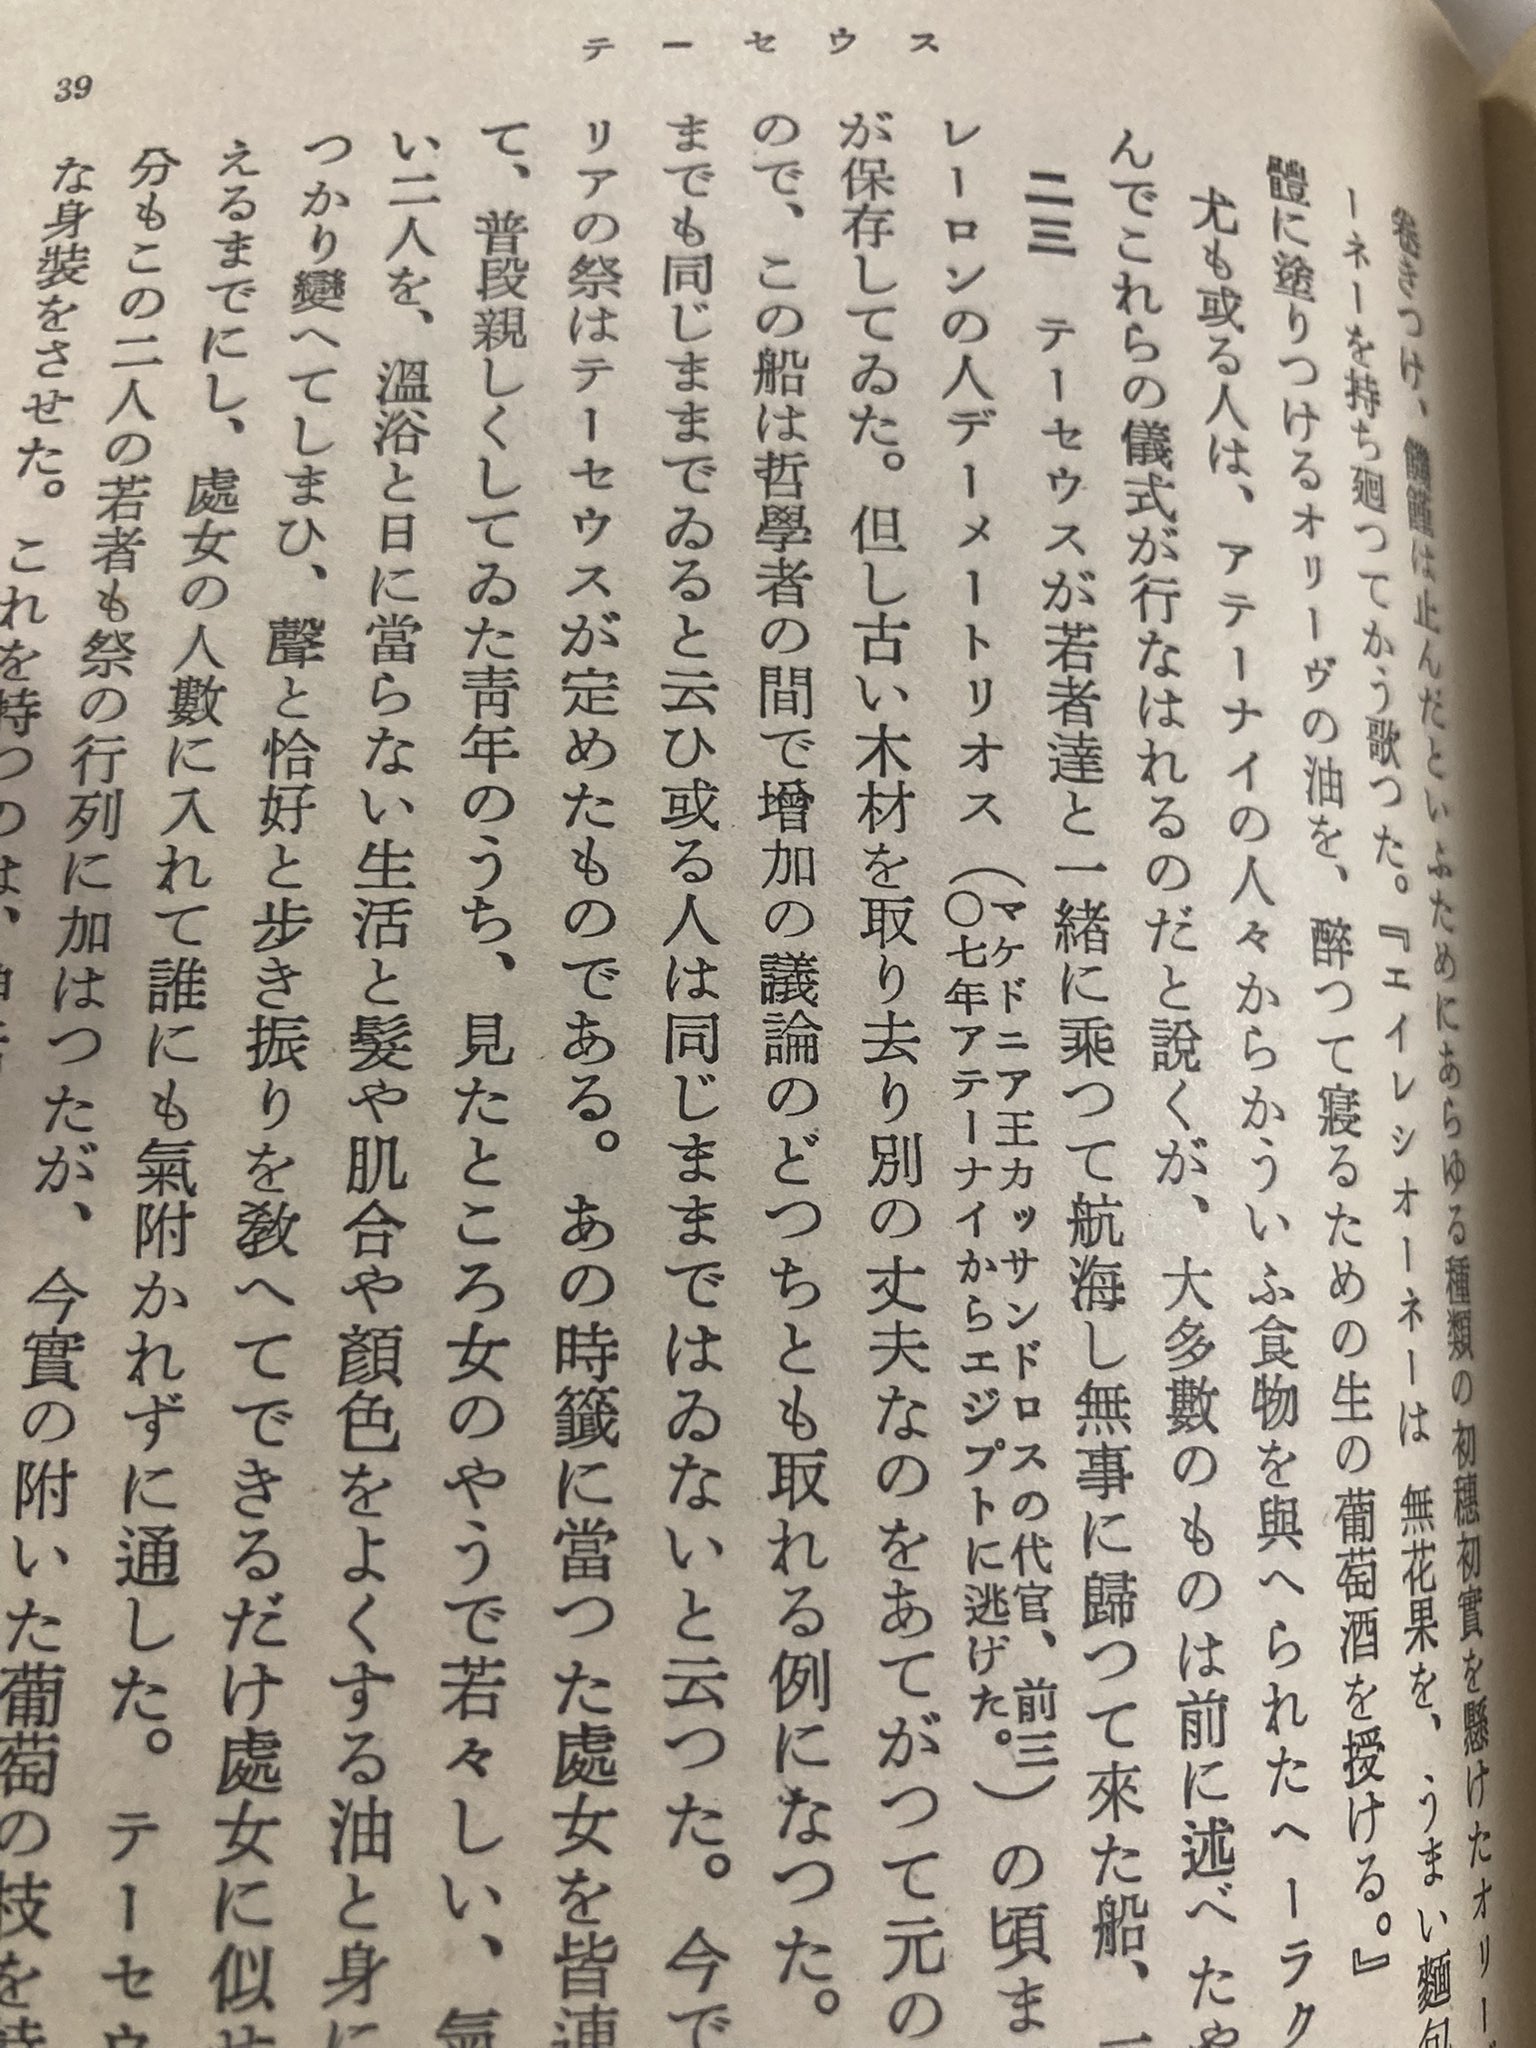 テーセウス
39
卷きつけ、饑饉は止んだといふためにあらゆる種類の初穗初實を懸けたオリー
ーネーを持ち廻つてかう歌つた。『エイレシオーネーは 無花果を、うまい麵包
體に塗りつけるオリーヴの油を、醉つて寢るための生の葡萄酒を授ける。』
尤も或る人は、アテーナイの人々からかういふ食物を與へられたヘーラク
んでこれらの儀式が行なはれるのだと說くが、大多數のものは前に述べたや
二三 テーセウスが若者達と一緒に乘つて航海し無事に歸つて來た船、
レーロンの人デーメートリオス(マケドニア王カッサンドロスの代官、前三
〇七年アテーナイからエジプトに逃げた。)の頃ま
が保存してゐた。但し古い木材を取り去り別の丈夫なのをあてがつて元の
ので、この船は哲學者の間で增加の議論のどつちとも取れる例になつた。
までも同じままでゐると云ひ或る人は同じままではゐないと云つた。今で
リアの祭はテーセウスが定めたものである。あの時籤に當つた處女を皆連
て、普段親しくしてゐた靑年のうち、見たところ女のやうで若々しい、氣
い二人を、溫浴と日に當らない生活と髮や肌合や顏色をよくする油と身に
つかり變へてしまひ、聲と恰好と步き振りを敎へてできるだけ處女に似せ
えるまでにし、處女の人數に入れて誰にも氣附かれずに通した。テーセウ
分もこの二人の若者も祭の行列に加はつたが、今實の附いた葡萄の枝を持
な身裝をさせた。これを持つのは、